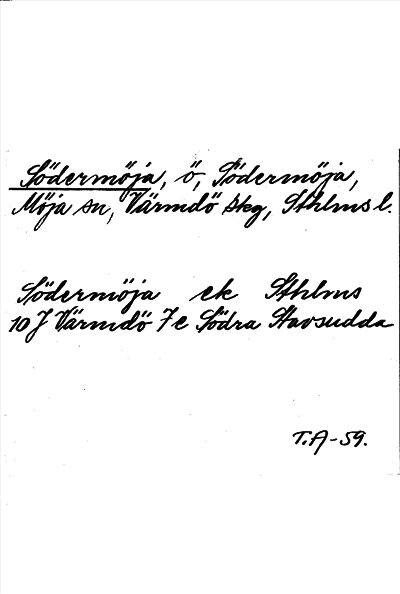 Södermöja, ö, Södermöja,
Möja sn, Värmdö skg, Sthlms l.
Södermöja ek Sthlms
10 J Värmdö 7 e Södra Stavsudda
T.A-59.